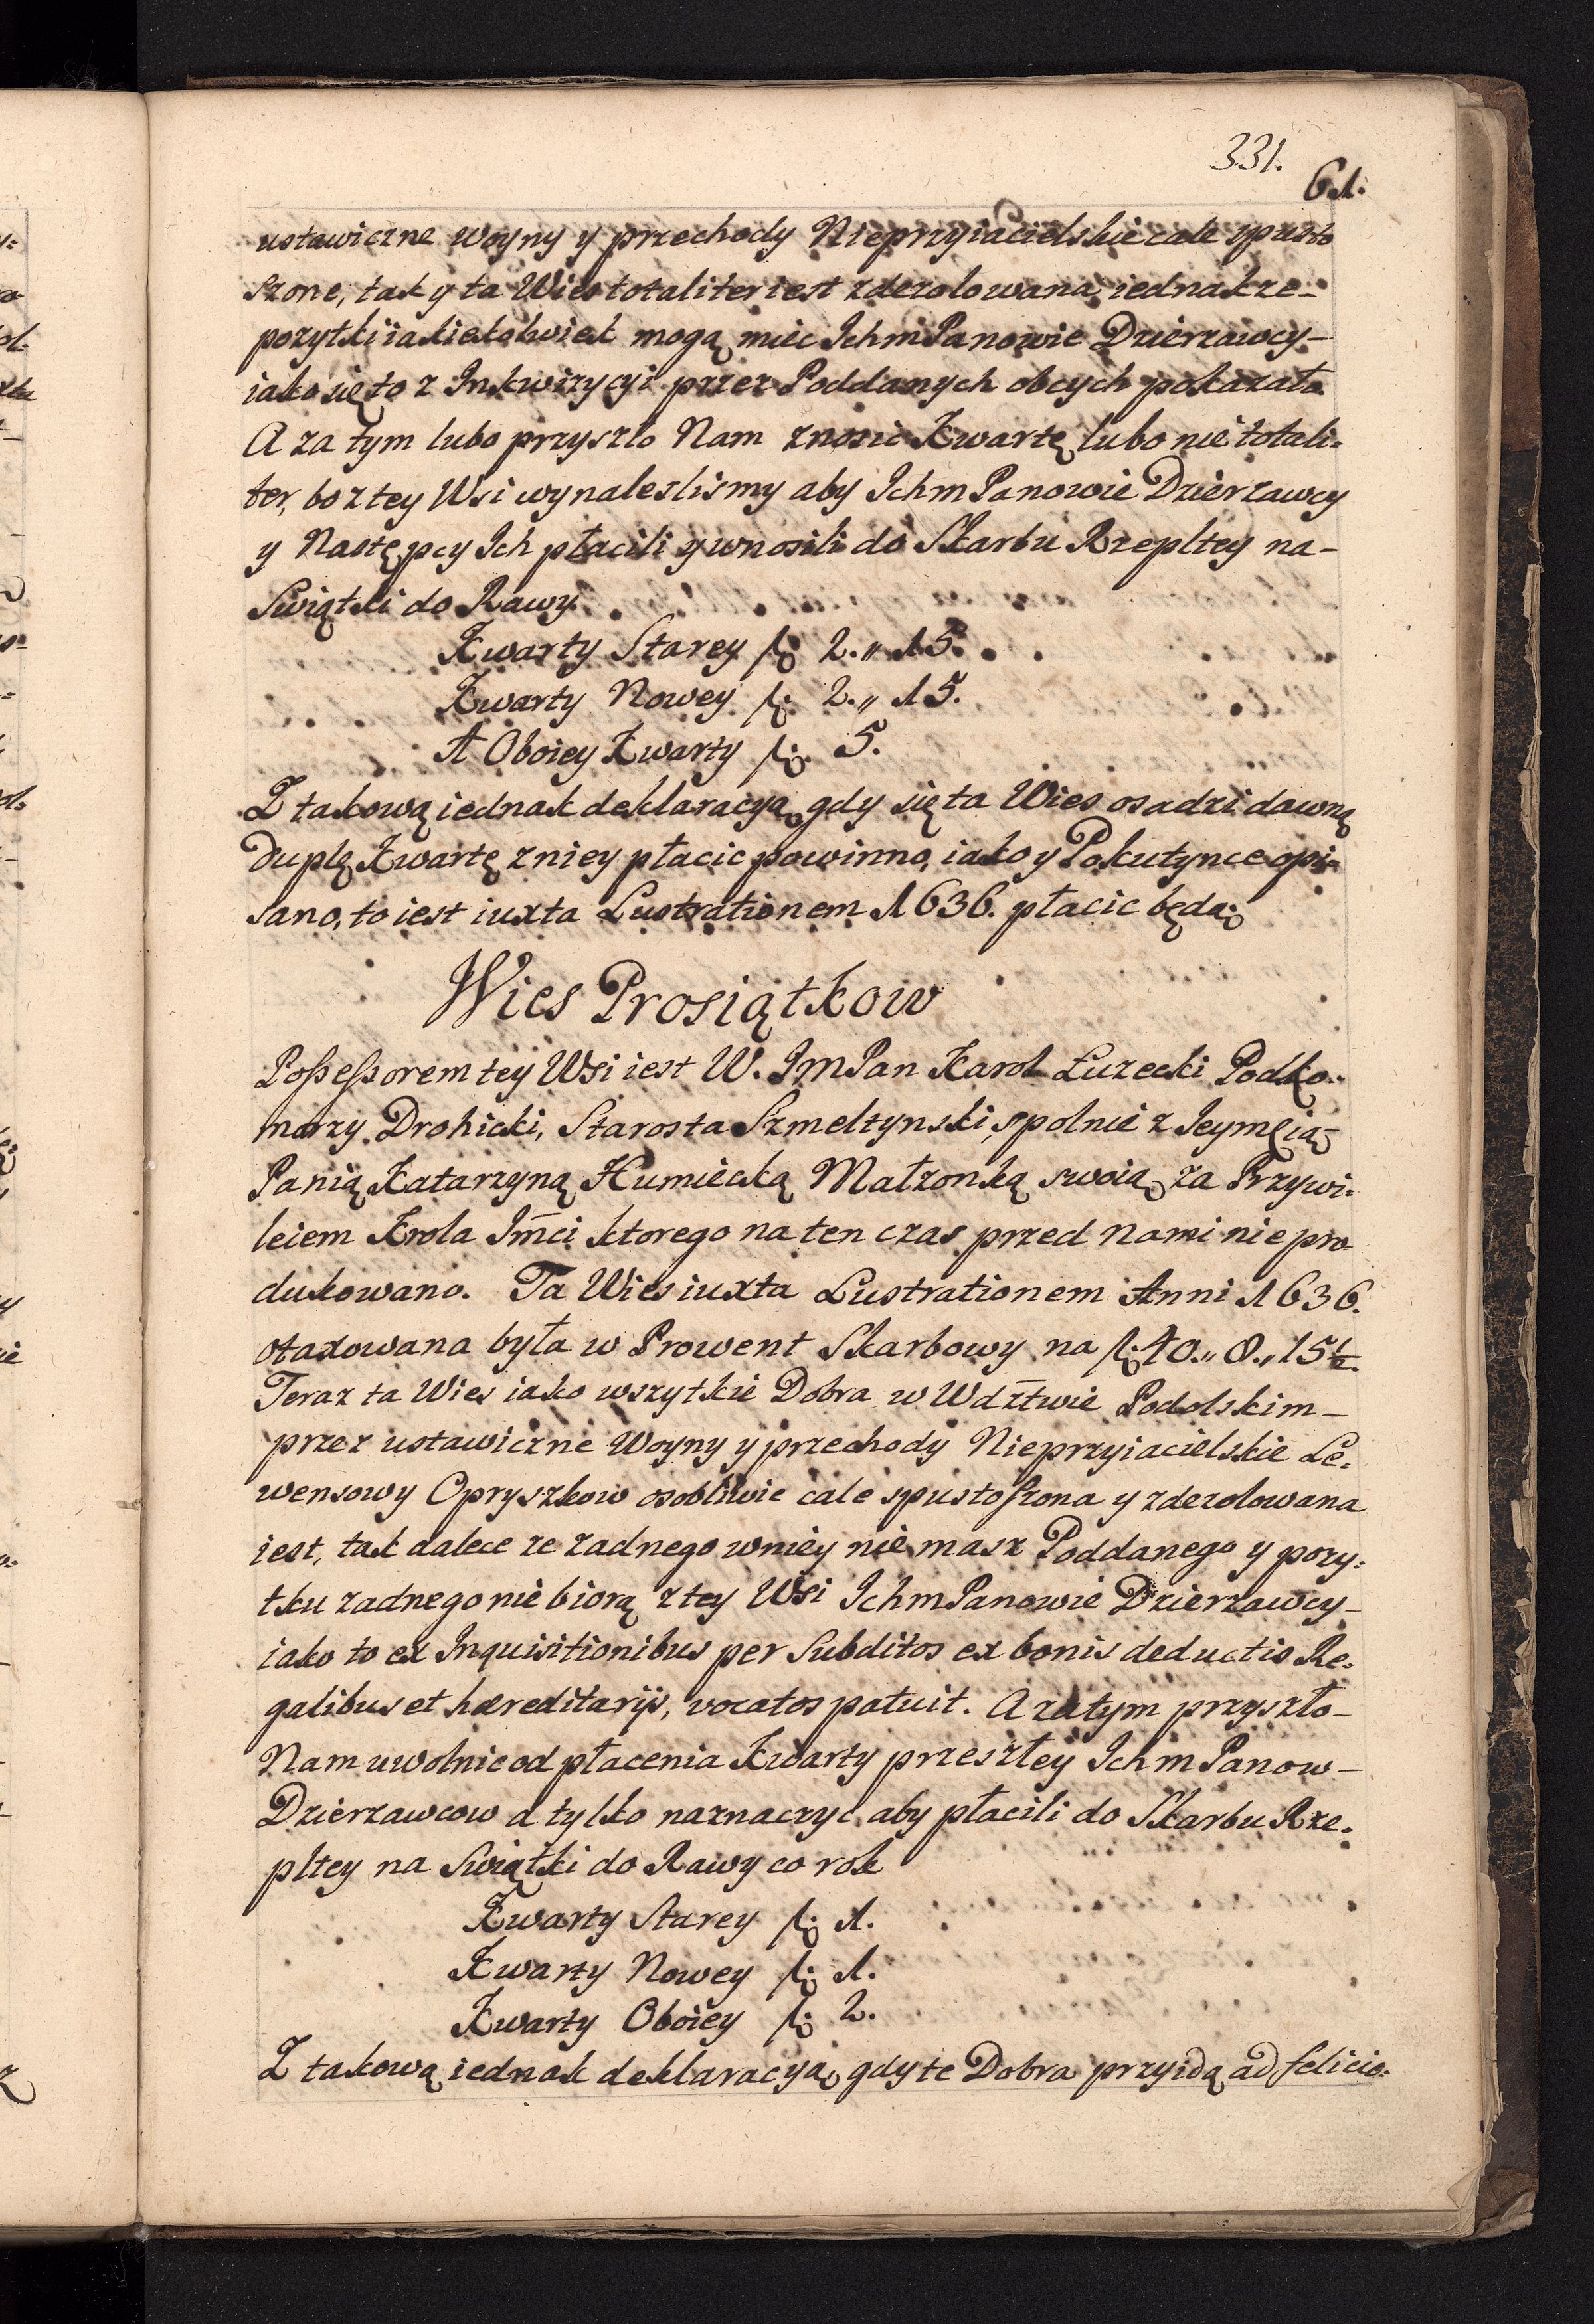 331.
61.
ustawiczne woyny y przechody Nieprzyiacielskie cale spusto
szone, tak y ta Wies totaliter iest zdezolowana, iednakze-
pozytki iakiekolwiek mogą miec Ichm Panowie Dzierzawcy-
iako się to z Inkwizycyi przez Poddanych obcych pokazało
A za tym lubo przyszło Nam znosic Kwartę, lubo nie totali-
ter, bo z tey Wsi wynalezlismy aby Ichm Panowie Dzierzawcy
y Następcy Ich płacili y wnosili do Skarbu Rzepltey na-
Swiątki do Rawy.
Kwarty Starey f: 2.„ 15.
Kwarty Nowey f: 2.„ 15.
A Oboiey Kwarty f: 5.
Z takową iednak deklaracyą, gdy się ta Wies osadzi dawną
Duplę Kwartę z niey płacic powinno, iako y Pokutynce opi-
sano, to iest iuxta Lustrationem 1636. płacic będą.
Wies Prosiątkow
Possessorem tey Wsi iest W. Jm Pan Karol Łuzecki Podko-
morzy Drohicki, Starosta Szmeltynski, spolnie z Jeymcią
Panią Katarzyną Humiecką Małzonką swoią, za Przywi-
leiem Krola Jmci ktorego na ten czas przed nami nie pro-
dukowano. Ta Wies iuxta Lustrationem Anni 1636.
otaxowana była w Prowent Skarbowy na f: 40.„ 0.„ 15½.
Teraz ta Wies iako wszytkie Dobra w Wdztwie Podolskim-
przez ustawiczne Woyny y przechody Nieprzyiacielskie Le-
wensowy Opryszkow osobliwie cale spustoszona y zdezolowana
iest, tak dalece ze zadnego w niey nie masz Poddanego y pozy-
tku zadnego nie biorą z tey Wsi Ichm Panowie Dzierzawcy-
iako to ex Inquisitionibus per Subditos ex bonis deductis Re-
galibus et hæreditarijs, vocatos patuit. A zatym przyszło-
Nam uwolnic od płacenia Kwarty przeszłey Ichm Panow-
Dzierzawcow a tylko naznaczyc aby płacili do Skarbu Rze-
pltey na Swiątki do Rawy co rok
Kwarty Starey f: 1.
Kwarty Nowey f: 1.
Kwarty Oboiey f: 2.
Z takową iednak deklaracyą, gdy te Dobra przyidą ad felicio-